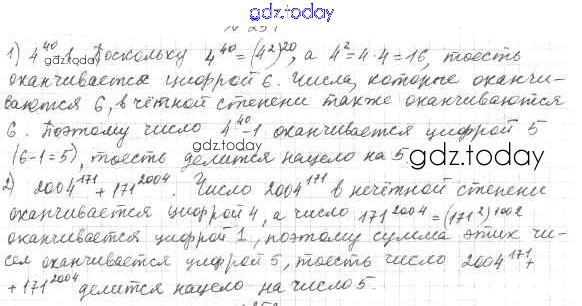 gdz.today
№ 251
1) 4⁴⁰-1. Поскольку 4⁴⁰=(4²)²⁰, а 4²=4·4=16, тоесть
оканчивается цифрой 6. Числа, которые оканчи-
ваются 6, в чётной степени также оканчиваются
6. Поэтому число 4⁴⁰-1 оканчивается цифрой 5
gdz.today
(6-1=5), тоесть делится нацело на 5.
gdz.today
2) 2004¹⁷¹+171²⁰⁰⁴. Число 2004¹⁷¹ в нечётной степени
оканчивается цифрой 4, а число 171²⁰⁰⁴=(171²)¹⁰⁰²
оканчивается цифрой 1, поэтому сумма этих чи-
сел оканчивается цифрой 5, тоесть число 2004¹⁷¹+
+171²⁰⁰⁴ делится нацело на число 5.